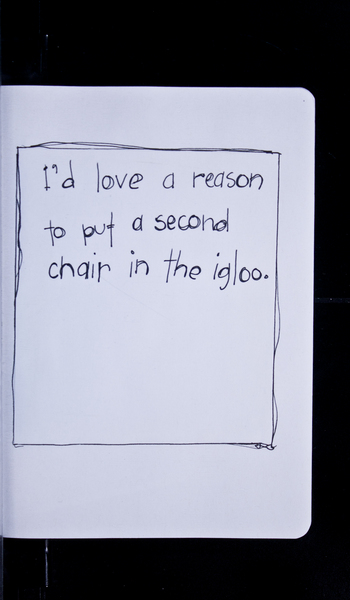 I'd love a reason
to put a second
chair in the igloo.